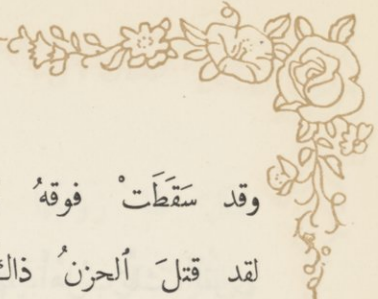 وقد سَقَطَتْ فوقهُ
لقد قتلَ ٱلحزنُ ذاك